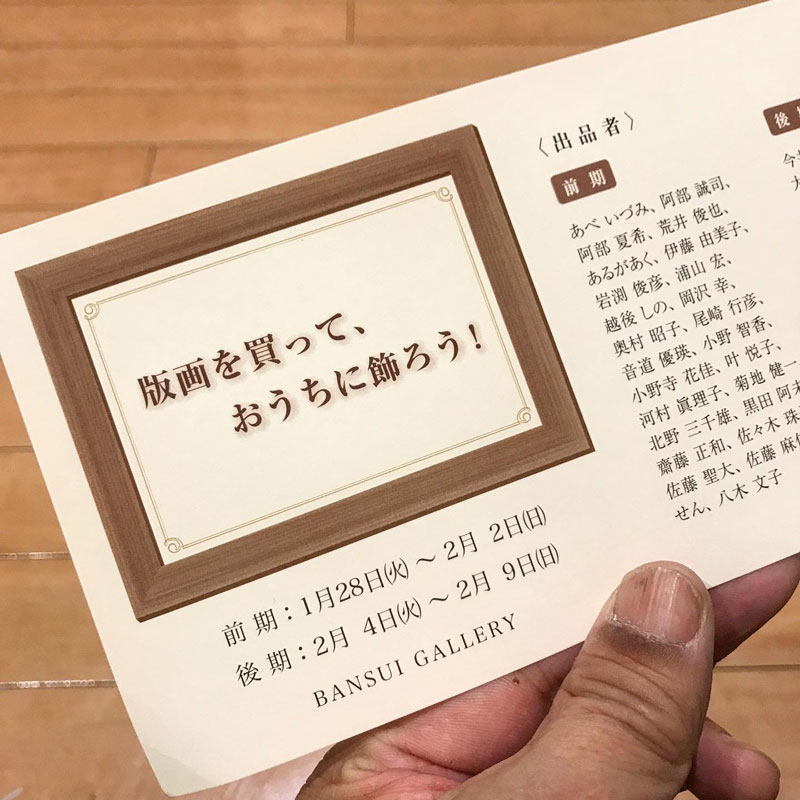 版画を買って、
おうちに飾ろう!
前期：1月28日㈫ 〜 2月 2日㈰
後期：2月 4日㈫ 〜 2月 9日㈰
BANSUI GALLERY
〈出品者〉
前期
あべ いづみ、阿部 誠司、
阿部 夏希、荒井 俊也、
あるがあく、伊藤 由美子、
岩渕 俊彦、浦山 宏、
越後 しの、岡沢 幸、
奥村 昭子、尾崎 行彦、
音道 優瑛、小野 智香、
小野寺 花佳、叶 悦子、
河村 眞理子、菊地 健一
北野 三千雄、黒田 阿未
齋藤 正和、佐々木 珠
佐藤 聖大、佐藤 麻
せん、八木 文子
後